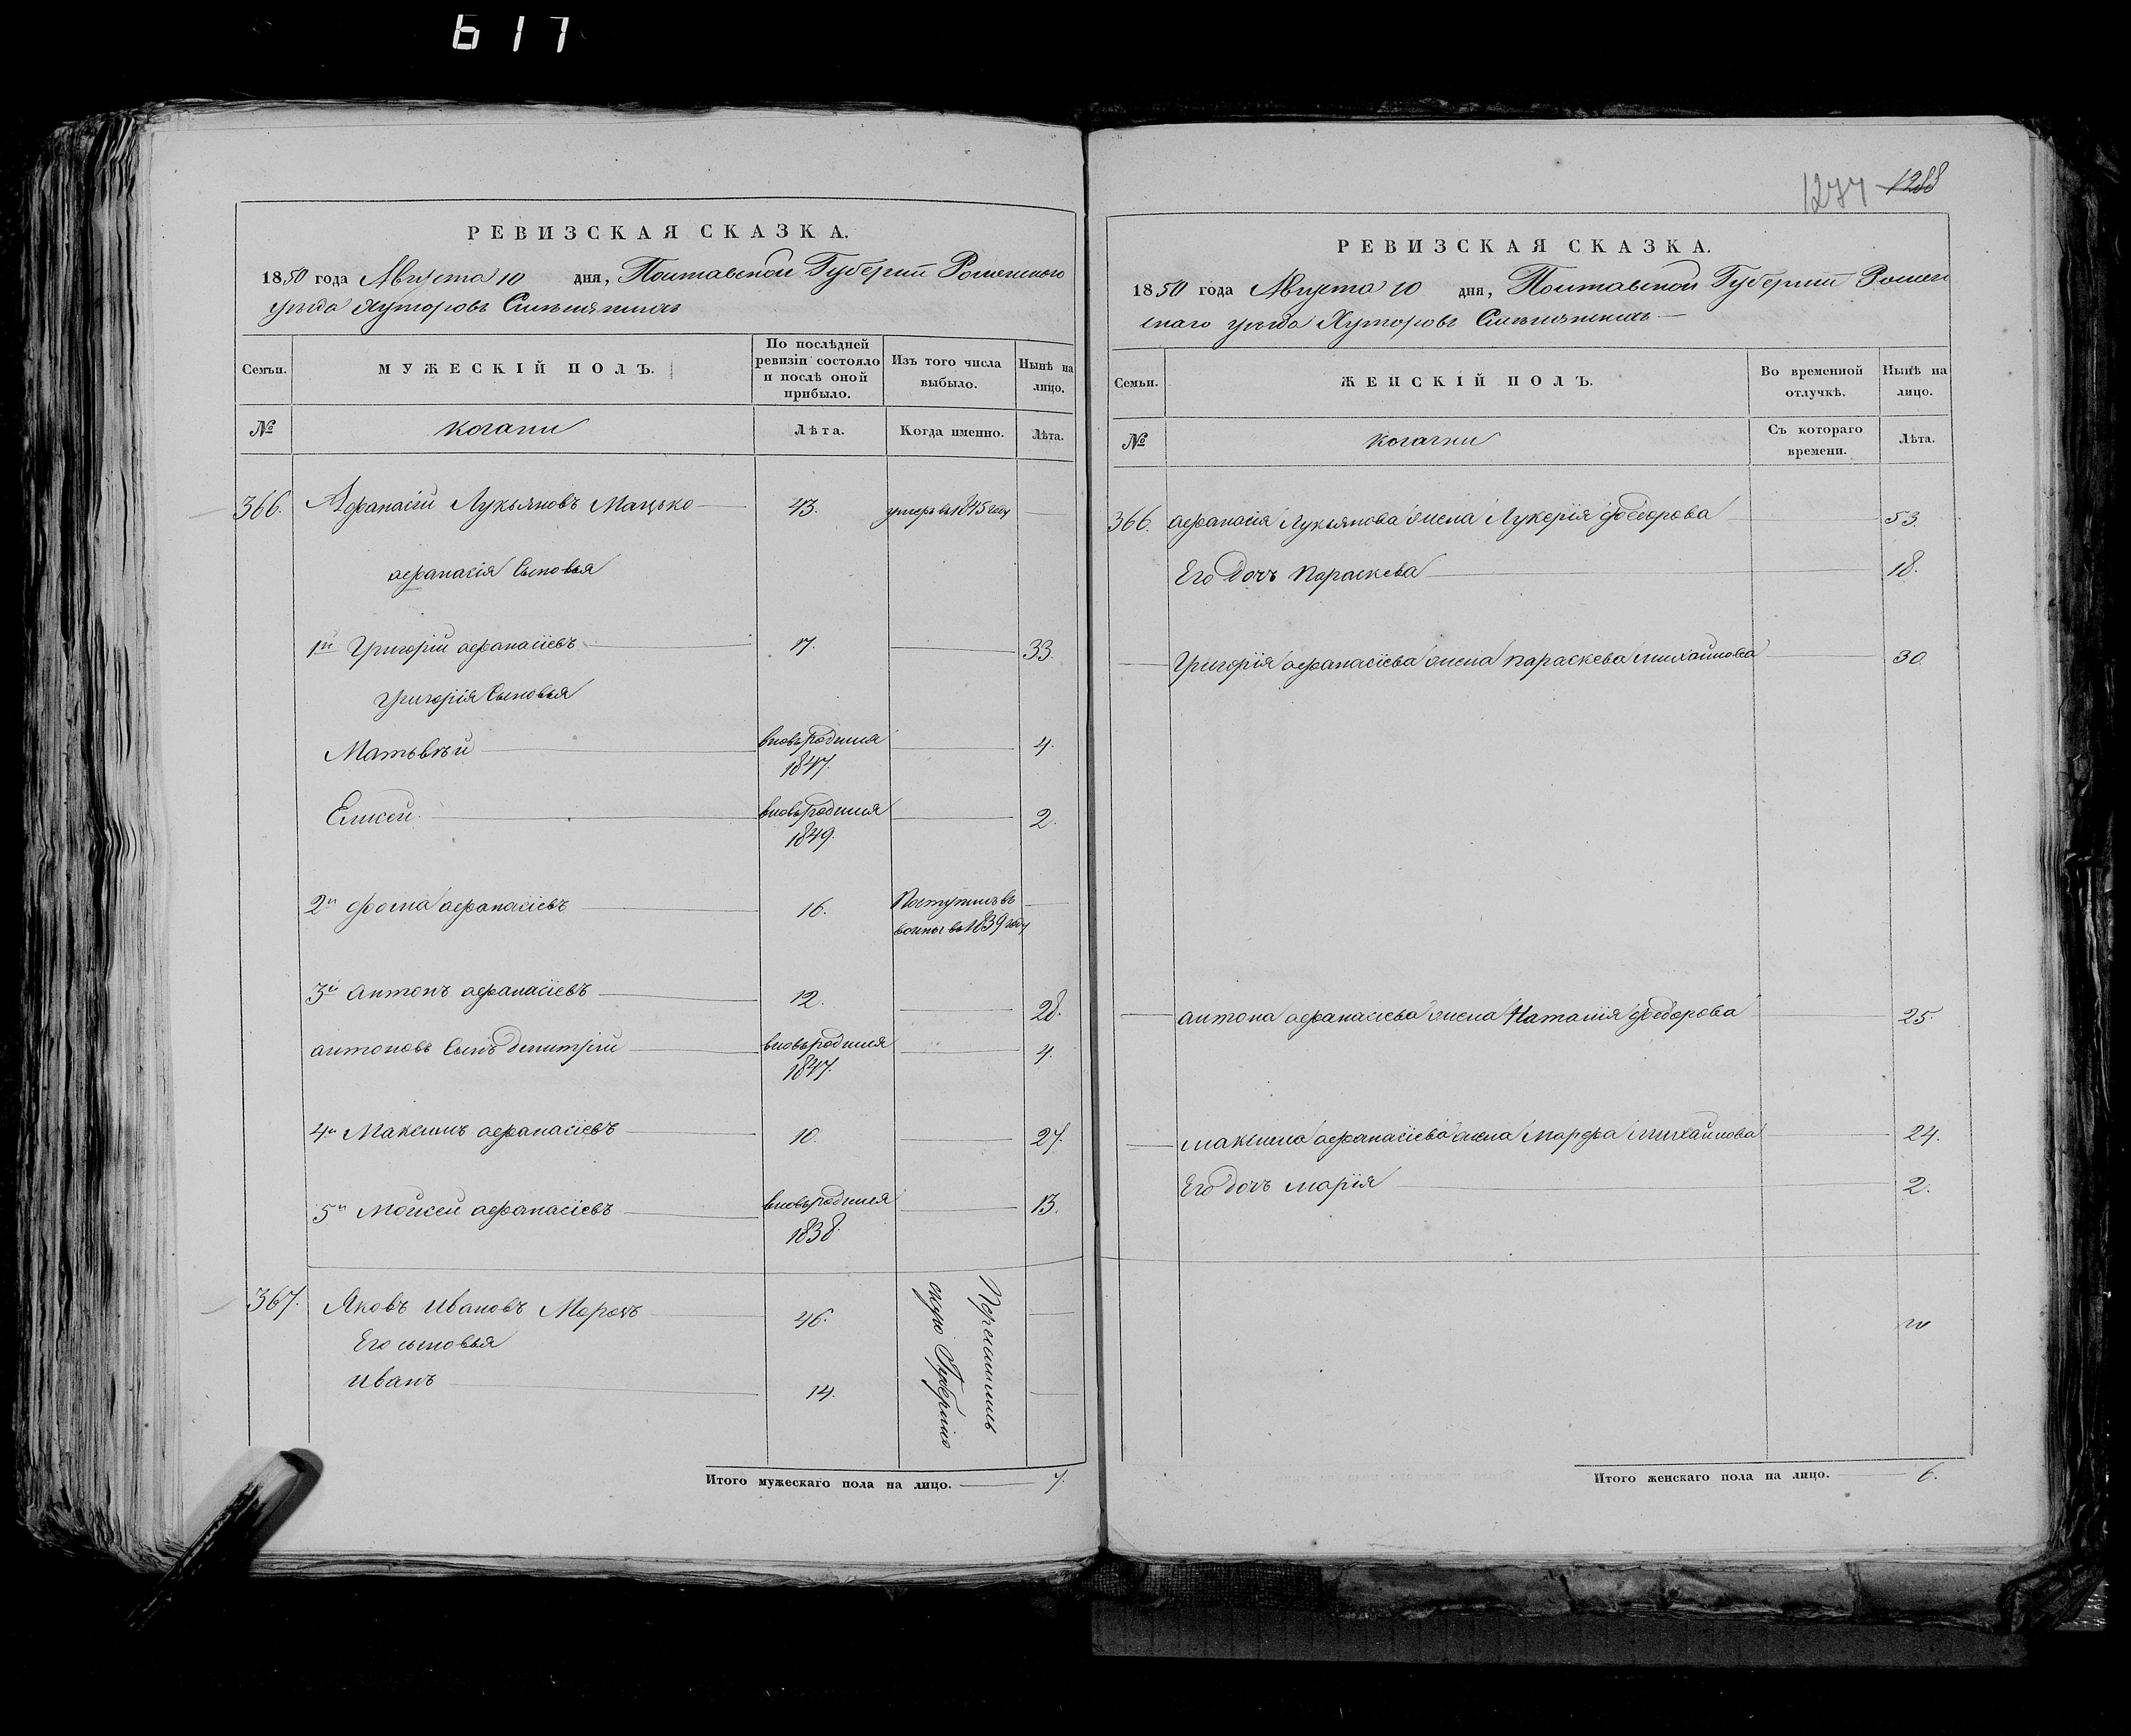 617
РЕВИЗСКАЯ СКАЗКА.
1850 года Августа 10 дня, Полтавской Губерніи Роменского
уезда Хуторовъ
Семьи.
МУЖЕСКІЙ ПОЛЪ.
По послѣдней ревизіи состояло и послѣ оной прибыло.
Изъ того числа выбыло.
Нынѣ на лицо.
№
козаки
Лѣта.
Когда именно.
Лѣта.
366. Афанасій Лукьяновъ Мацько 43. умеръ в 1845 году
афанасія Сыновья
1й Григорій афанасіевъ 17. 33.
Григорія Сыновья
Матьвѣй вновьродился 1847. 4.
Елисей вновьродился 1849. 2.
2й фома афанасіевъ 16. Поступилъ въ воины в 1839 году
3й антонъ афанасіевъ 12. 28.
антоновъ Сынъ дмитрій вновьродился 1847. 4.
4й Максимъ афанасіевъ 10. 27.
5й Мойсей афанасіевъ вновьродился 1838. 13.
367. Яковъ ивановъ 46.
Его сыновья
иванъ 14.
скую Губернію
Итого мужескаго пола на лицо. 7.
1277 1288
РЕВИЗСКАЯ СКАЗКА.
1850 года Августа 10 дня, Полтавской Губерніи Ромен
скаго уезда Хуторовъ
Семьи.
ЖЕНСКІЙ ПОЛЪ.
Во временной отлучкѣ.
Нынѣ на лицо.
№
козачки
Съ котораго времени.
Лѣта.
366. афанасія Лукьянова жена Лукерія федорова 53.
Его дочь Параскева 18.
Григорія афанасіева жена параскева михайлова 30.
антона афанасіева жена Наталия федорова 25.
максима афанасіева жена Марфа михайлова 24.
Его дочь марія 2.
Итого женскаго пола на лицо. 6.